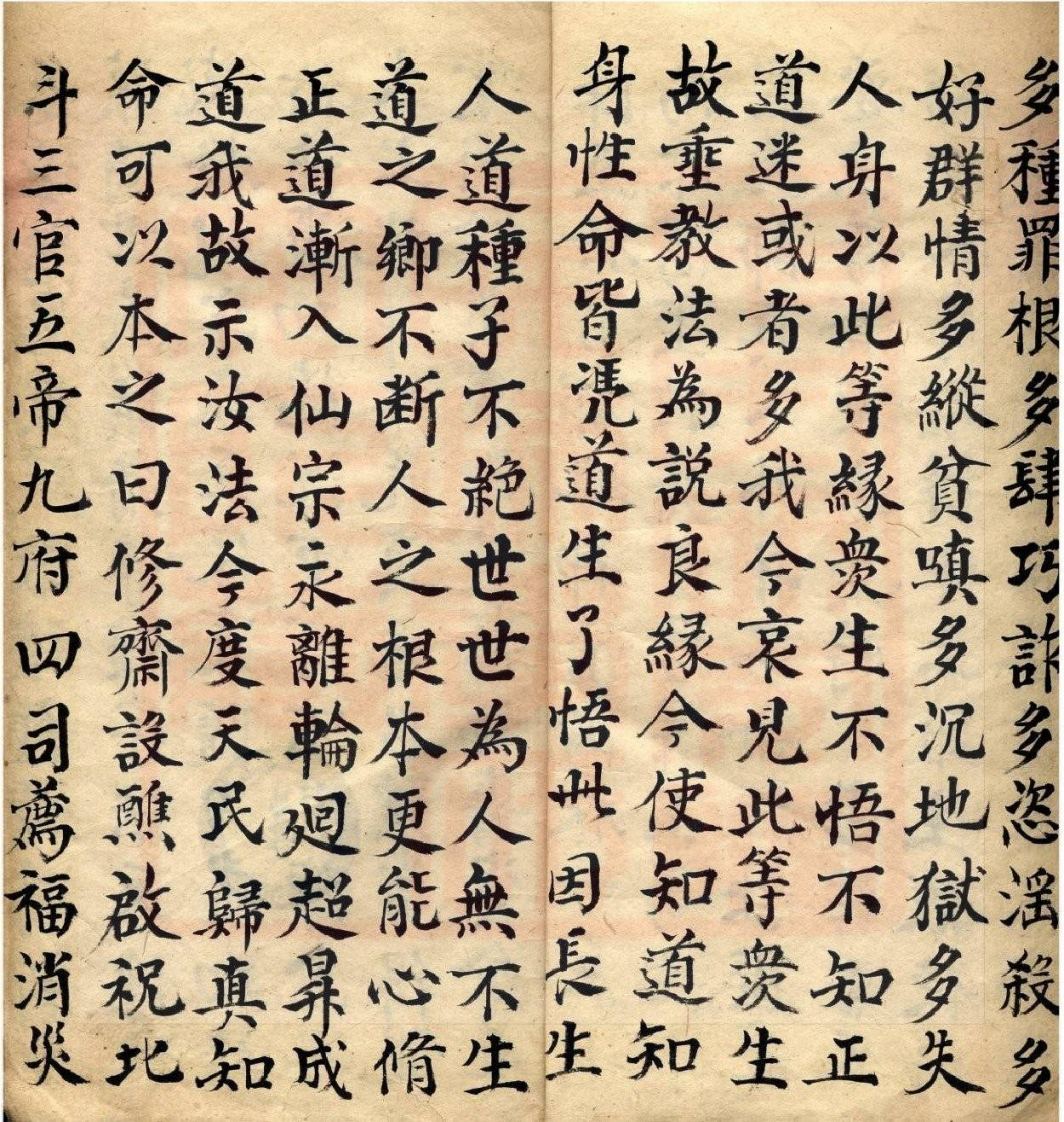 多種罪根多肆巧詐多恣淫殺多
好群情多縱貧嗔多沉地獄多失
人身以此等緣衆生不悟不知正
道迷或者多我今哀見此等衆生
故垂教法為説良緣今使知道知
身性命皆凴道生了悟此因長生
人道種子不絶世世為人無不生
道之鄉不断人之根本更能心脩
正道漸入仙宗永離輪廻超昇成
道我故示汝法今度天民歸真知
命可以本之曰修齋設醮啟祝北
斗三官五帝九府四司薦福消災